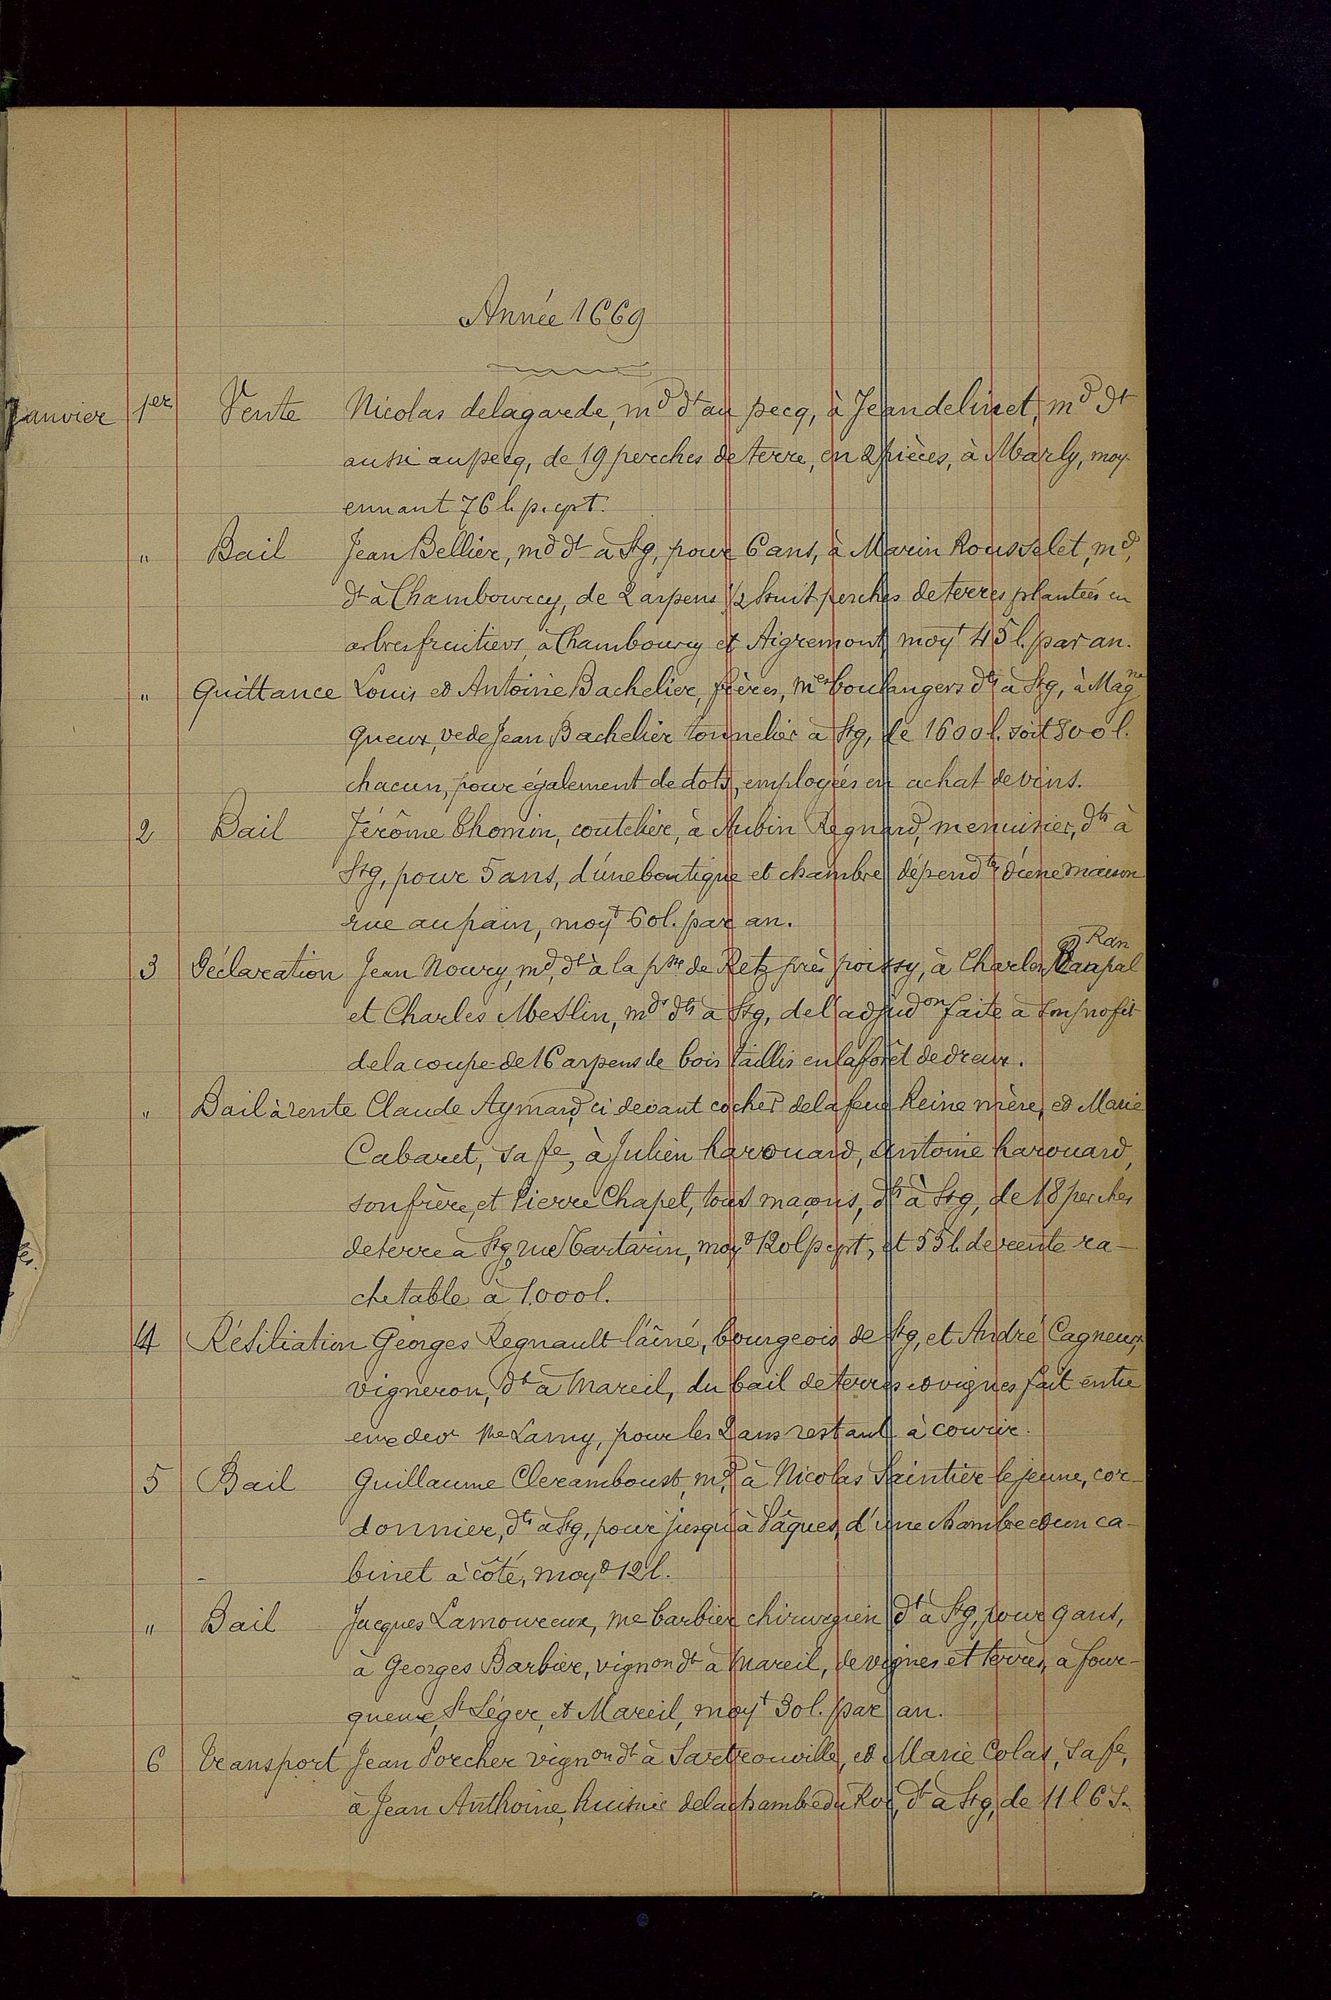 Année 1669
Janvier 1er Vente Nicolas delagarde, md dt au pecq, à Jean delinet, md dt
aussi au pecq, de 19 perches de terre, en 2 pièces, à Marly, moy-
ennant 76 l. p. cpt.
" Bail Jean Bellier, md dt à Stg, pour 6 ans, à Marin Rousselet, md,
dt à Chambourcy, de 2 arpens 1/2 huit perches de terres plantées en
arbres fruitiers, à Chambourcy et Aigremont, moyt 45 l. par an.
" Quittance Louis et Antoine Bachelier, frères, mes boulangers dts à Stg, à Magne
Queux, ve de Jean Bachelier tonnelier à Stg, de 1600 l. soit 800 l.
chacun, pour également de dots, employées en achat de vins.
2 Bail Jérôme Thomin, coutelier, à Aubin Regnard, menuisier, dts à
Stg, pour 5 ans, d'une boutique et chambre dépendtes d'une maison
rue au pain, moyt 60 l. par an.
3 Déclaration Jean Noury, md, dt à la psse de Retz près poissy, à Charles Ranpal
Ran
et Charles Meslin, mds dts à Stg, de l'adjudon faite à son profit
de la coupe de 16 arpens de bois taillis en la forêt de dreux.
" Bail à rente Claude Aymard, ci devant cocher de la feue Reine mère, et Marie
Cabaret, sa fe, à Julien harouard, Antoine harouard,
son frère, et Pierre Chapet, tous maçons, dts à Stg, de 18 perches
de terre à Stg, rue Tartarin, moyt 120 l p cpt, et 55 l. de rente ra-
chetable à 1.000 l.
4 Résiliation Georges Regnault l'aîné, bourgeois de Stg, et André Cagneux,
vigneron, dt à Mareil, du bail de terres et vignes fait entre
eux devt Me Lamy, pour les 2 ans restant à courir.
5 Bail Guillaume Cleramboust, md, à Nicolas Saintier le jeune, cor-
donnier, dts à Stg, pour jusqu'à Pâques, d'une chambre et un ca-
binet à côté, moyt 12 l.
" Bail Jacques Lamoureux, me barbier chirurgien dt à Stg, pour 9 ans,
à Georges Barbier, vignon dt à Mareil, de vignes et terres, à four-
queux, St Léger, et Mareil, moyt 30 l. par an.
6 Transport Jean Porcher vignon dt à Sartrouville, et Marie Colas, sa fe,
à Jean Anthoine, huissier de la chambre du Roi, dt à Stg, de 11 l 6 s.